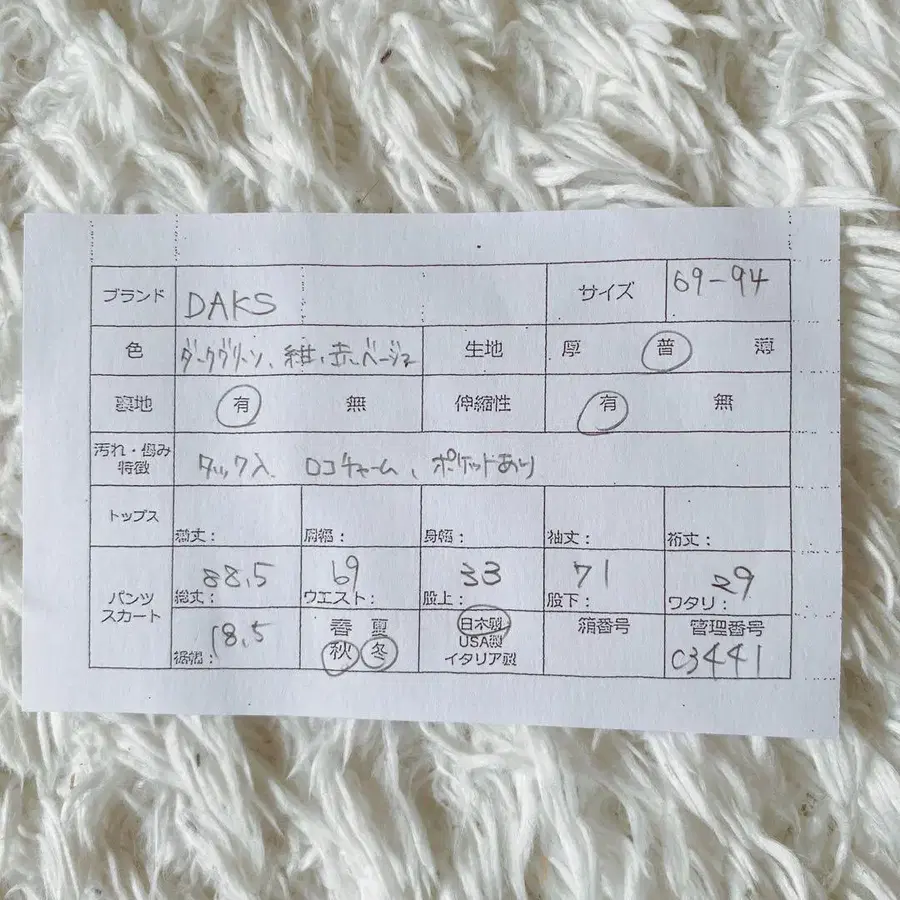 ブランド DAKS サイズ 69-94
色 ダークグリーン、紺、赤、ベージュ 生地 厚 普 薄
裏地 有 無 伸縮性 有 無
汚れ・傷み
特徴 タック入 ロゴチャーム、ポケットあり
トップス 着丈: 肩幅: 身幅: 袖丈: 裄丈:
パンツ
スカート 88.5 69 33 71 29
総丈: ウエスト: 股上: 股下: ワタリ:
18.5 春 夏 日本製 箱番号 管理番号
裾幅: 秋 冬 USA製 C3441
イタリア製